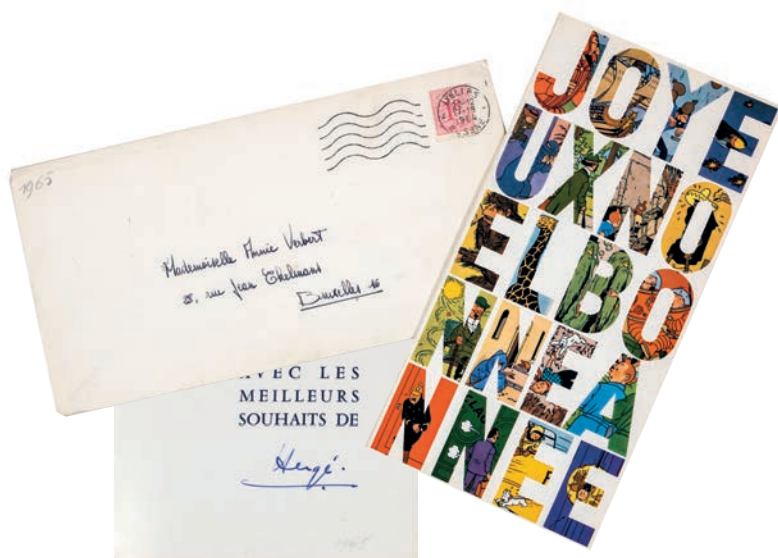 1965
1964
Mademoiselle Annie Verbert
rue Jean
Bruxelles 16
AVEC LES
MEILLEURS
SOUHAITS DE
Hergé.
1965
JOYE
UXNO
ELBO
NNEA
NNEE